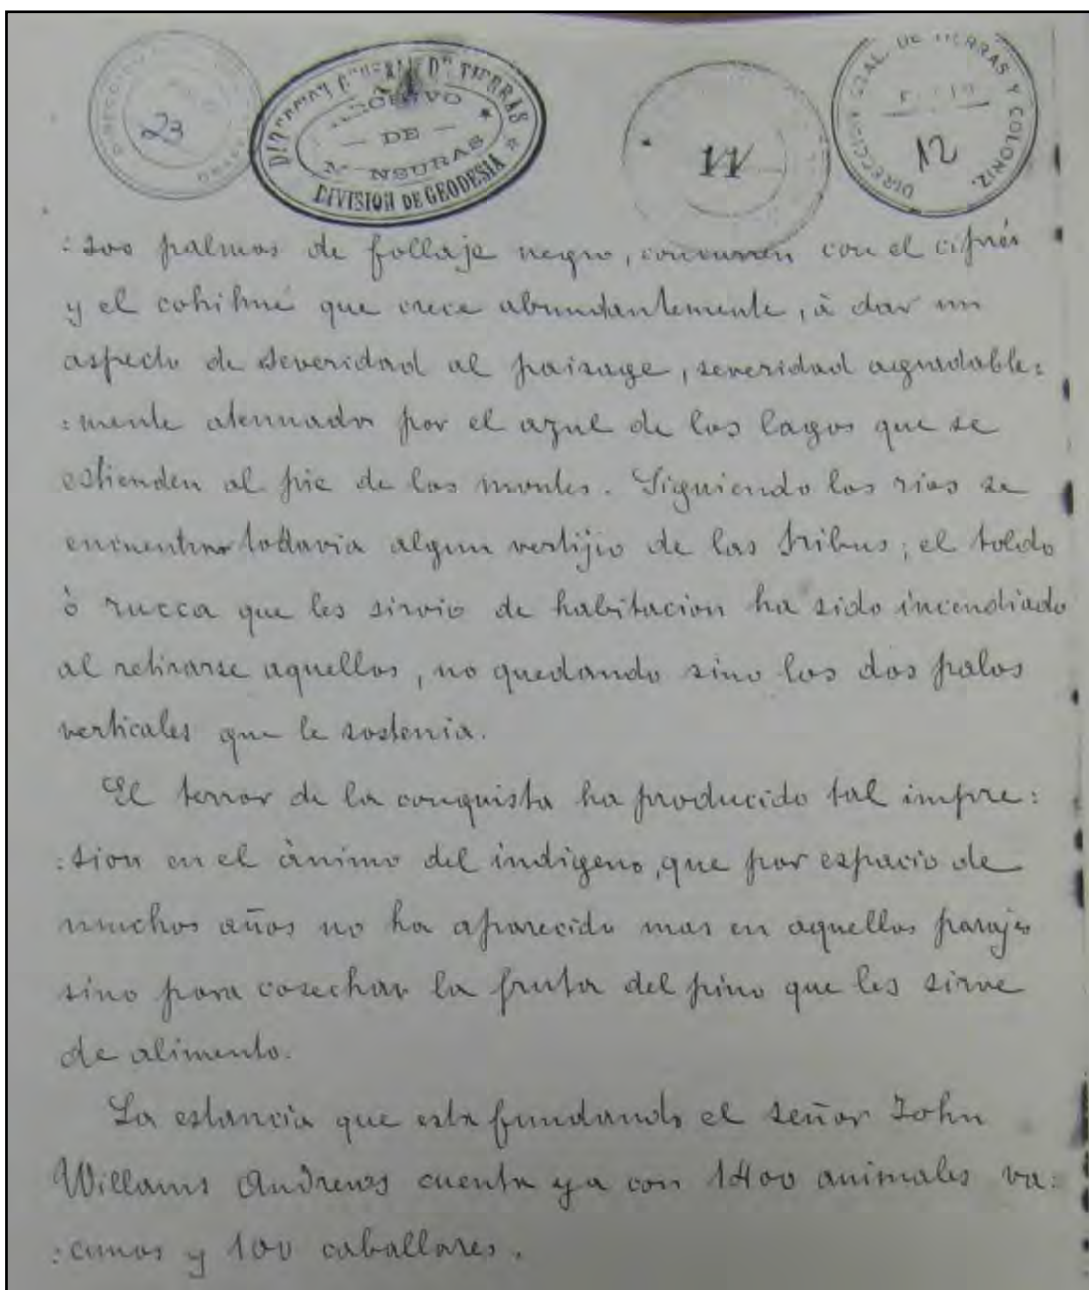 23
ARCHIVO
DE
MENSURAS
DIVISION DE GEODESIA
11
DIRECCION GRAL. DE TIERRAS Y COLONIZ.
12
:sos palmas de follaje negro, concurren con el ciprés
y el cohihué que crece abundantemente, à dar un
aspecto de severidad al paisage, severidad agradable:
:mente atenuada por el azul de los lagos que se
estienden al pie de los montes. Siguiendo los rios se
encuentra todavia algun vestijio de las tribus; el toldo
ò rucca que les sirvio de habitacion ha sido incendiado
al retirarse aquellos, no quedando sino los dos palos
verticales que le sostenia.
El terror de la conquista ha producido tal impre:
:sion en el ànimo del indigena, que por espacio de
muchos años no ha aparecido mas en aquellos parajes
sino para cosechar la fruta del pino que les sirve
de alimento.
La estancia que esta fundando el señor John
Willams Andrews cuenta ya con 1400 animales va:
:cunos y 100 caballares.